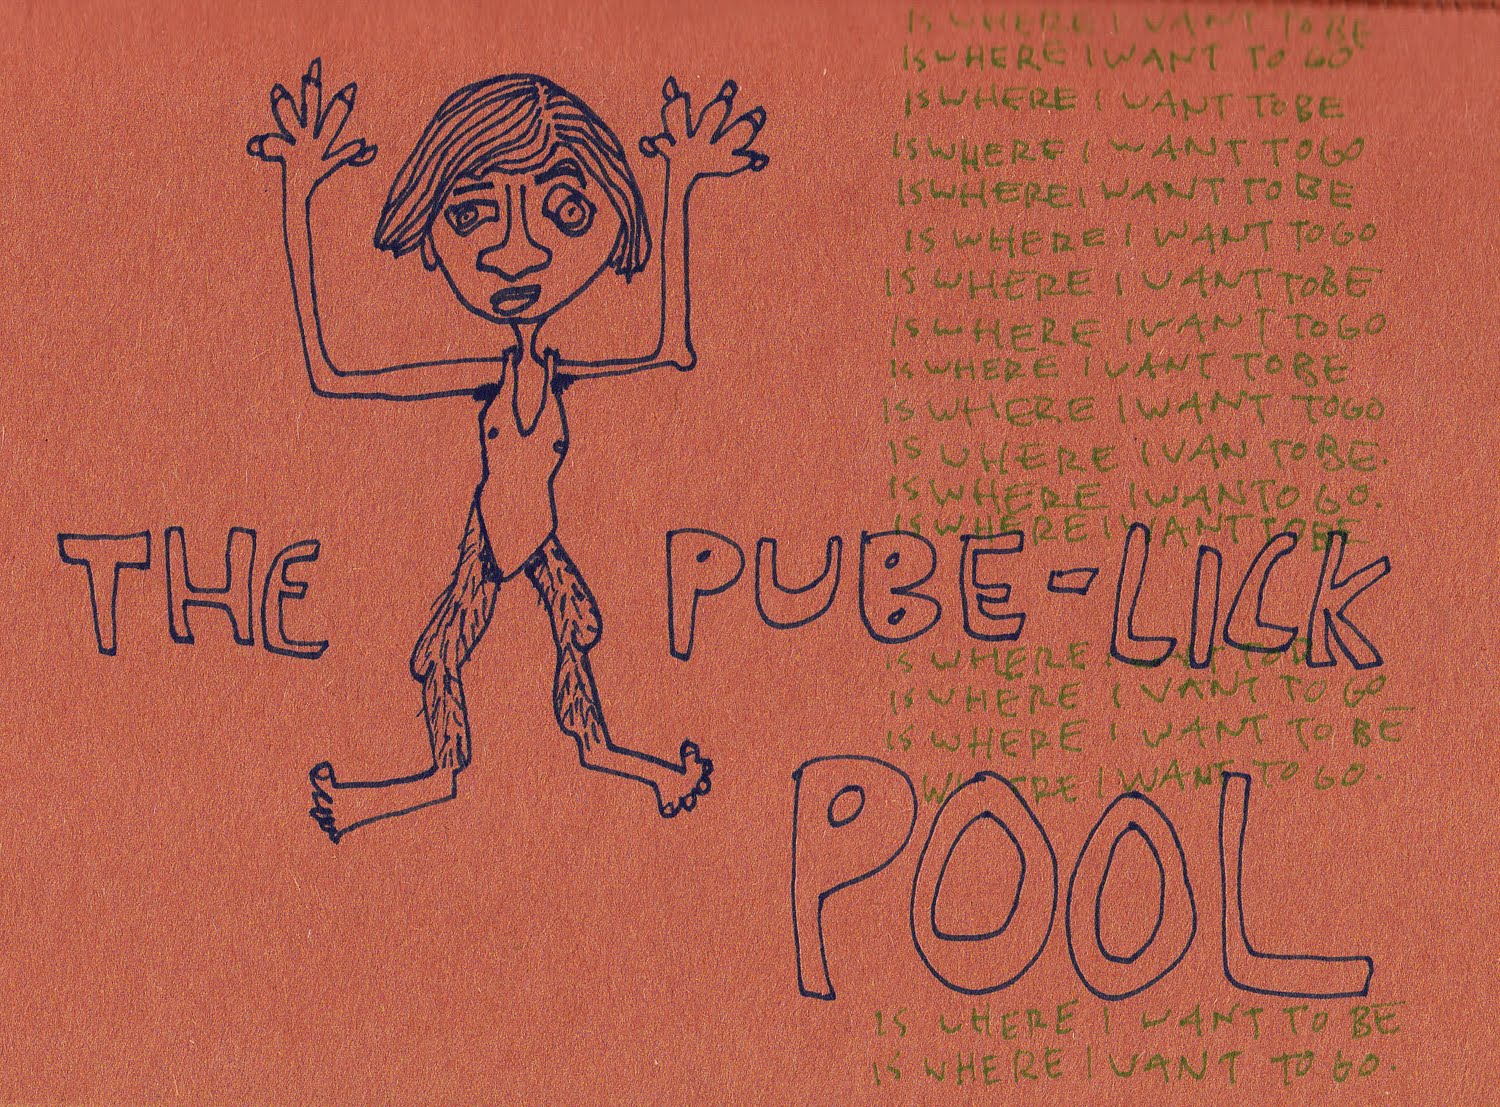 IS WHERE I WANT TO BE
IS WHERE I WANT TO GO
IS WHERE I WANT TO BE
IS WHERE I WANT TO GO
IS WHERE I WANT TO BE
IS WHERE I WANT TO GO
IS WHERE I WANT TO BE
IS WHERE I WANT TO GO
IS WHERE I WANT TO BE
IS WHERE I WANT TO GO
IS WHERE I WAN TO BE.
IS WHERE I WAN TO GO.
IS WHERE I WANT TO BE
THE PUBE-LICK
IS WHERE I WANT TO BE
IS WHERE I WANT TO GO
IS WHERE I WANT TO BE
WHERE I WANT TO GO.
POOL
IS WHERE I WANT TO BE
IS WHERE I WANT TO GO.